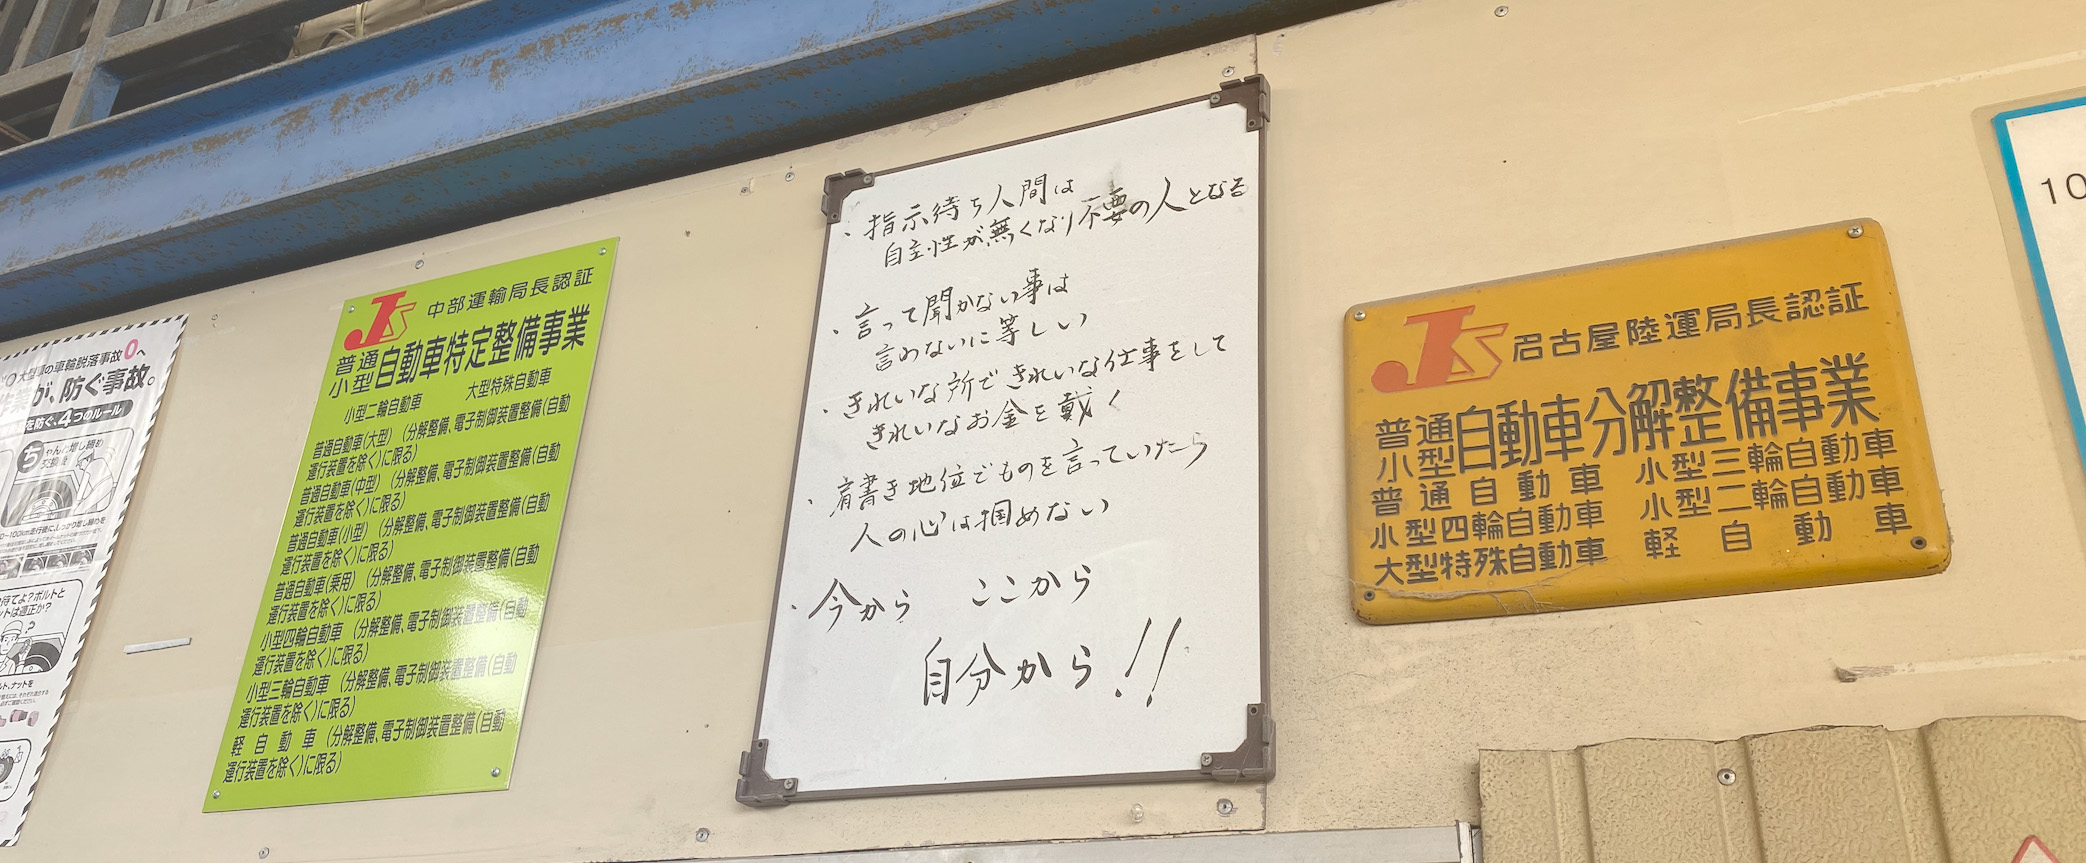 大型車の車輪脱落事故0へ
が、防ぐ事故。
を防ぐ、4つのルール
ち
JS 中部運輸局長認証
普通
小型
自動車特定整備事業
小型二輪自動車 大型特殊自動車
普通自動車(大型) (分解整備、電子制御装置整備(自動
運行装置を除く)に限る)
普通自動車(中型) (分解整備、電子制御装置整備(自動
運行装置を除く)に限る)
普通自動車(小型) (分解整備、電子制御装置整備(自動
運行装置を除く)に限る)
普通自動車(乗用) (分解整備、電子制御装置整備(自動
運行装置を除く)に限る)
小型四輪自動車 (分解整備、電子制御装置整備(自動
運行装置を除く)に限る)
小型三輪自動車 (分解整備、電子制御装置整備(自動
運行装置を除く)に限る)
軽自動車 (分解整備、電子制御装置整備(自動
運行装置を除く)に限る)
・指示待ち人間は
自主性が無くなり不要の人となる
・言って聞かない事は
言わないに等しい
・きれいな所できれいな仕事をして
きれいなお金を戴く
・肩書き地位でものを言っていたら
人の心は掴めない
・今から ここから
自分から!!
JS 名古屋陸運局長認証
普通
小型
自動車分解整備事業
普通自動車 小型三輪自動車
小型四輪自動車 小型二輪自動車
大型特殊自動車 軽自動車
10